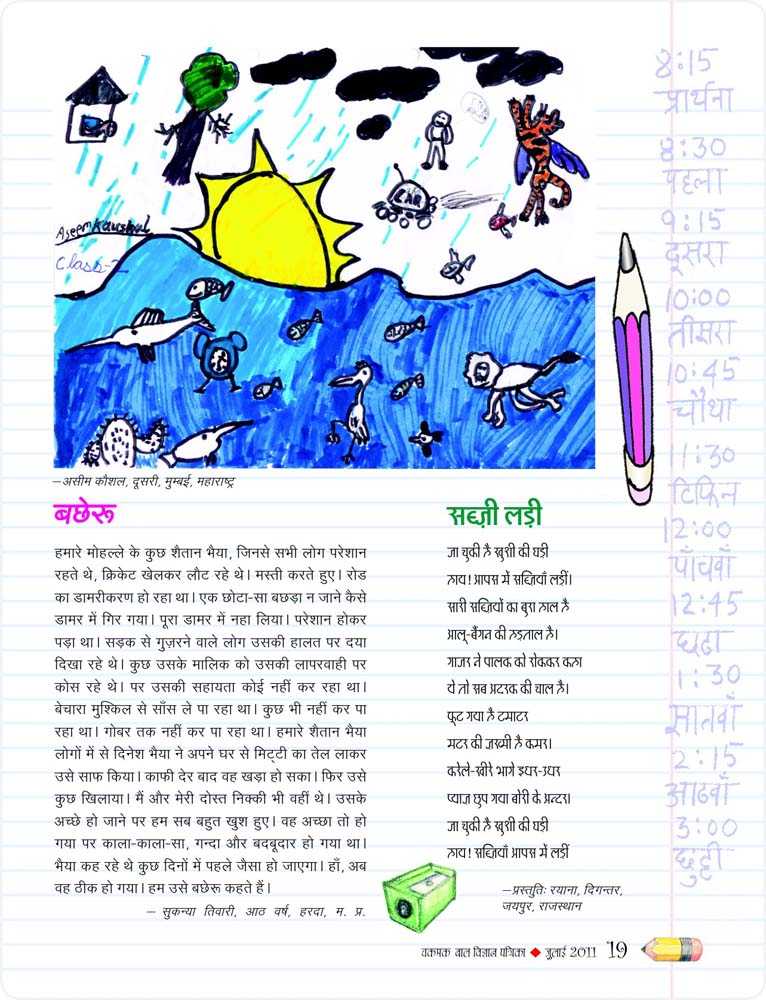 Aseem Kaushal
Class-2
CAR
–असीम कौशल, दूसरी, मुम्बई, महाराष्ट्र
बछेरू
हमारे मोहल्ले के कुछ शैतान भैया, जिनसे सभी लोग परेशान
रहते थे, क्रिकेट खेलकर लौट रहे थे। मस्ती करते हुए। रोड
का डामरीकरण हो रहा था। एक छोटा-सा बछड़ा न जाने कैसे
डामर में गिर गया। पूरा डामर में नहा लिया। परेशान होकर
पड़ा था। सड़क से गुज़रने वाले लोग उसकी हालत पर दया
दिखा रहे थे। कुछ उसके मालिक को उसकी लापरवाही पर
कोस रहे थे। पर उसकी सहायता कोई नहीं कर रहा था।
बेचारा मुश्किल से साँस ले पा रहा था। कुछ भी नहीं कर पा
रहा था। गोबर तक नहीं कर पा रहा था। हमारे शैतान भैया
लोगों में से दिनेश भैया ने अपने घर से मिट्टी का तेल लाकर
उसे साफ किया। काफी देर बाद वह खड़ा हो सका। फिर उसे
कुछ खिलाया। मैं और मेरी दोस्त निक्की भी वहीं थे। उसके
अच्छे हो जाने पर हम सब बहुत खुश हुए। वह अच्छा तो हो
गया पर काला-काला-सा, गन्दा और बदबूदार हो गया था।
भैया कह रहे थे कुछ दिनों में पहले जैसा हो जाएगा। हाँ, अब
वह ठीक हो गया। हम उसे बछेरू कहते हैं।
– सुकन्या तिवारी, आठ वर्ष, हरदा, म. प्र.
सब्ज़ी लड़ी
जा चुकी है खुशी की घड़ी
हाय! आपस में सब्ज़ियाँ लड़ीं।
सारी सब्ज़ियों का बुरा हाल है
आलू-बैंगन की हड़ताल है।
गाजर ने पालक को रोककर कहा
ये तो सब अदरक की चाल है।
फूट गया है टमाटर
मटर की ज़ख्मी है कमर।
करेले-खीरे भागे इधर-उधर
प्याज़ छुप गया बोरी के अन्दर।
जा चुकी है खुशी की घड़ी
हाय! सब्ज़ियाँ आपस में लड़ीं
–प्रस्तुतिः रयाना, दिगन्तर,
जयपुर, राजस्थान
8:15
प्रार्थना
8:30
पहला
9:15
दूसरा
10:00
तीसरा
10:45
चौथा
11:30
टिफिन
12:00
पाँचवाँ
12:45
छठा
1:30
सातवाँ
2:15
आठवाँ
3:00
छुट्टी
चकमक बाल विज्ञान पत्रिका ◆ जुलाई 2011 19